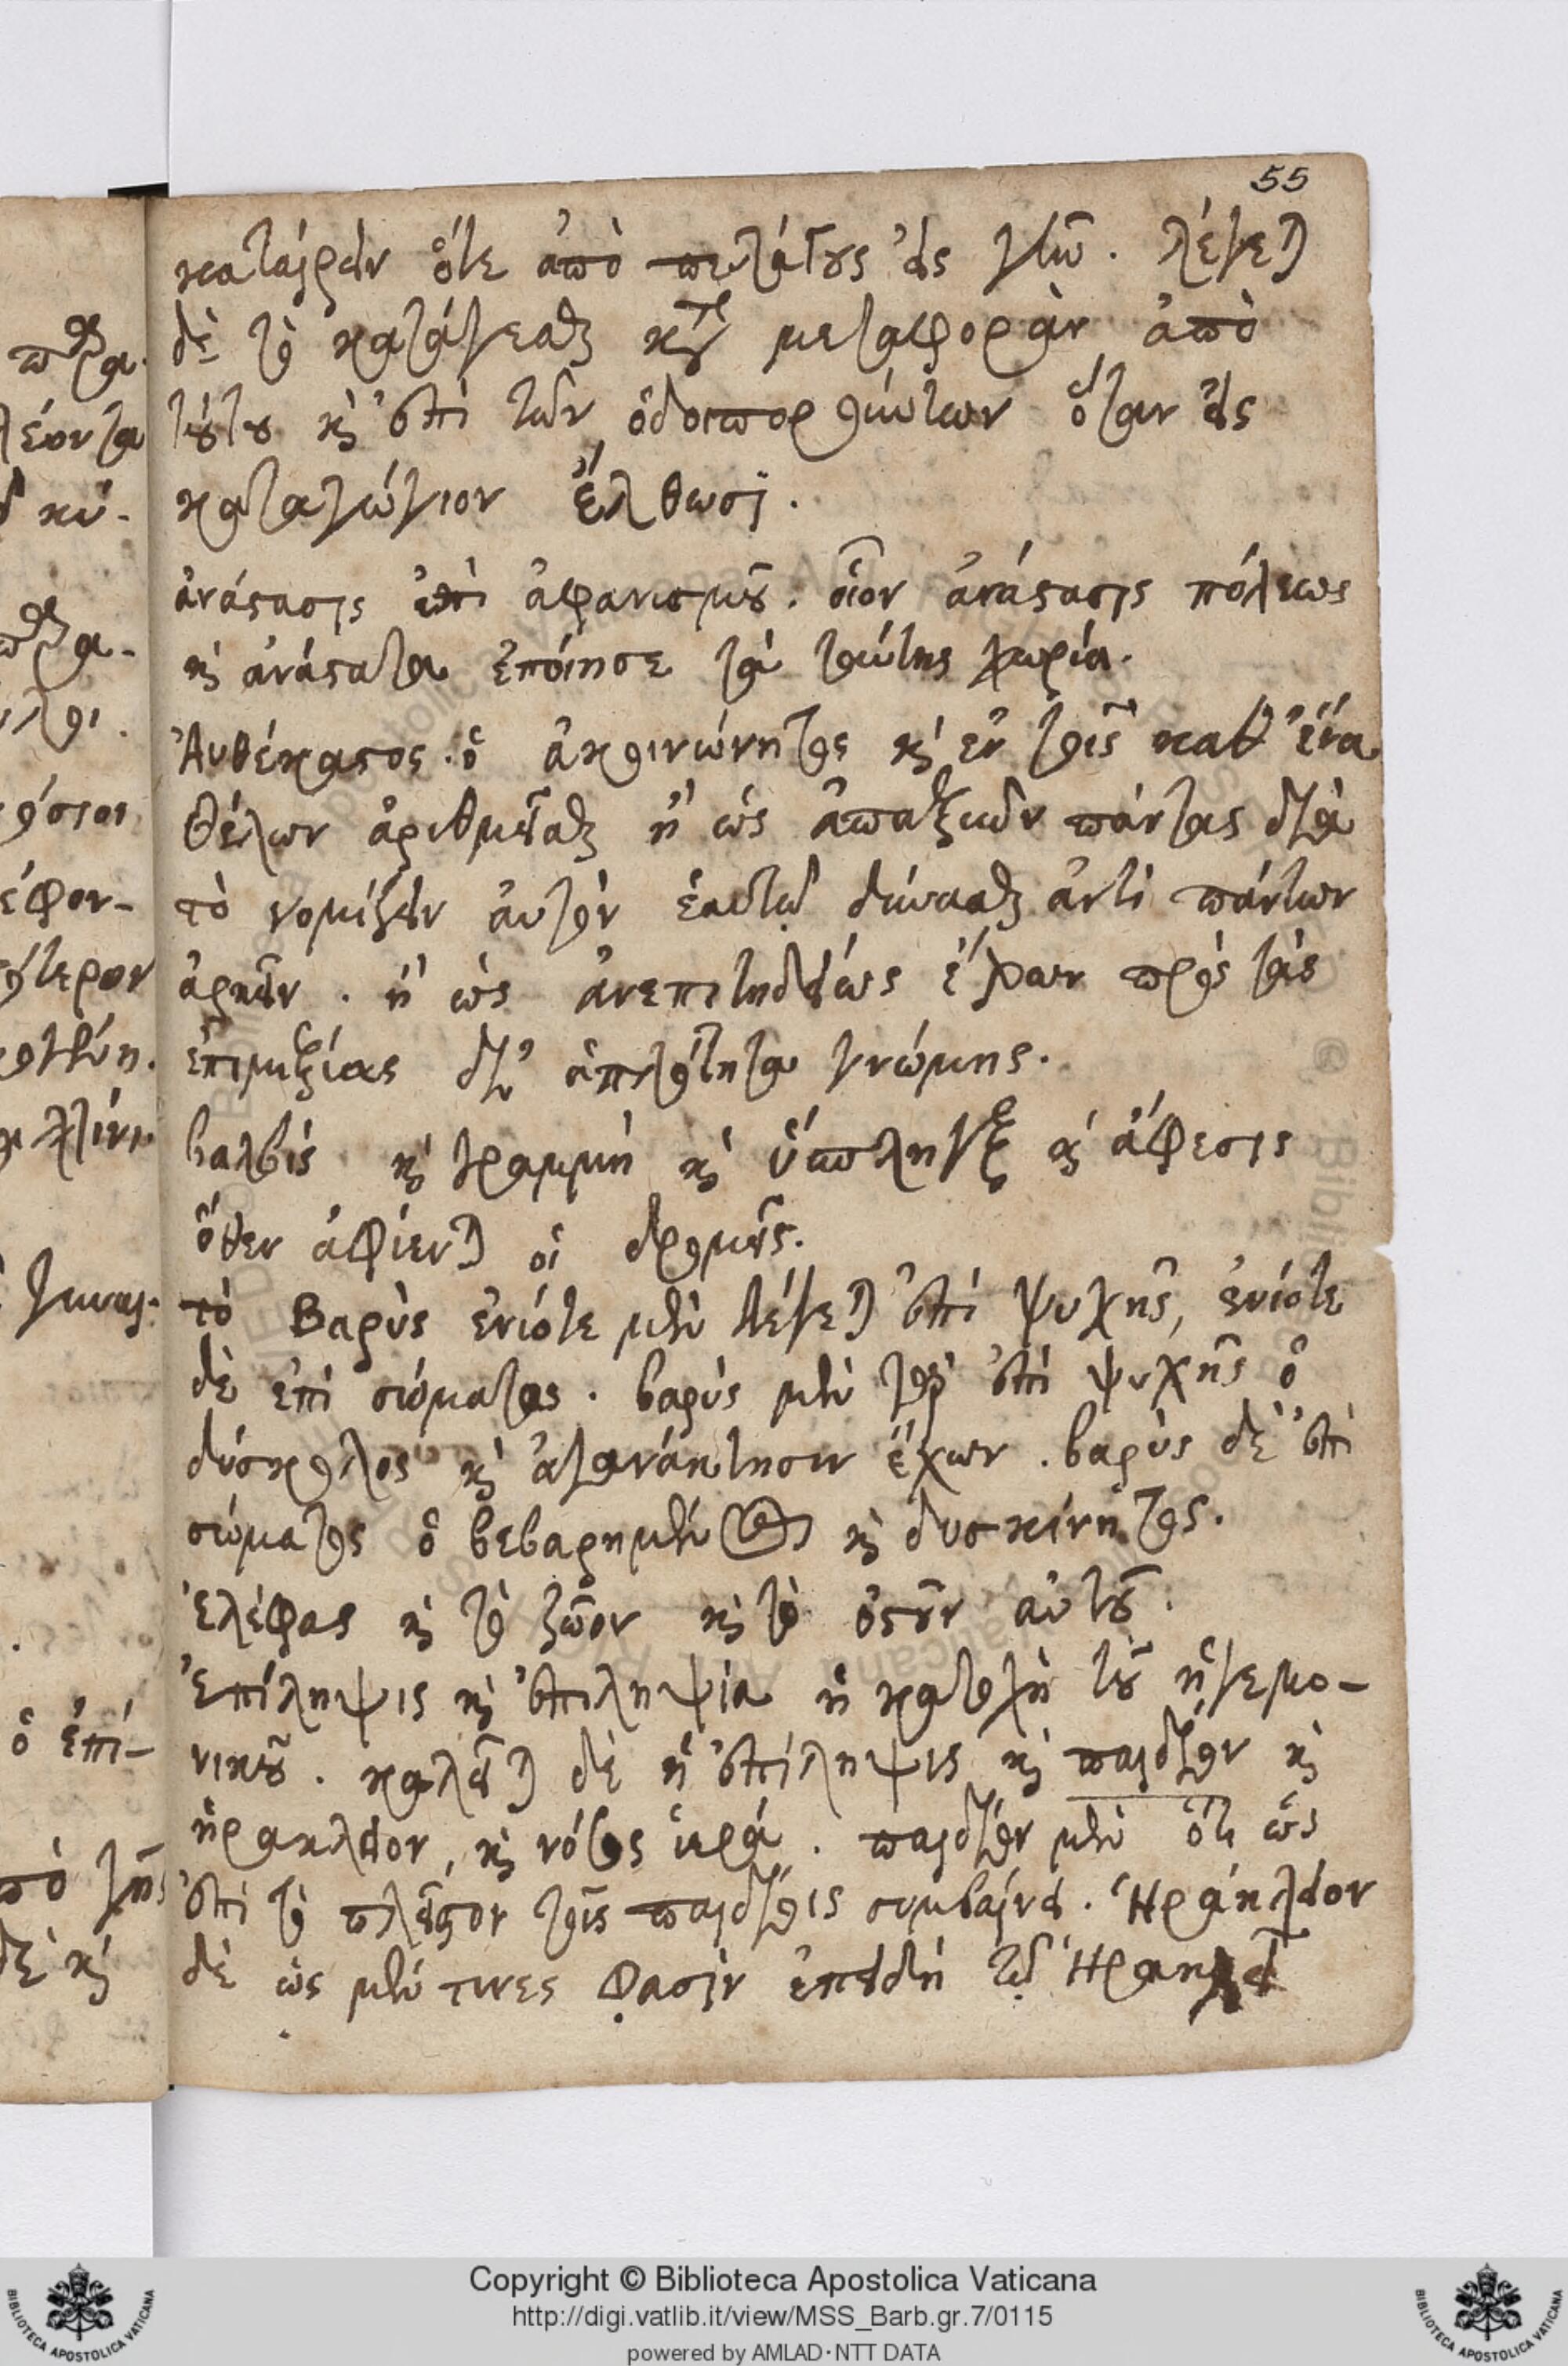 55
καταίρειν ὅτε ἀπὸ πελάγους εἰς γῆν. λέγεται
δὲ τὸ κατάγεσθαι κατὰ μεταφορὰν ἀπὸ
τούτου καὶ ἐπὶ τῶν ὁδοιπορούντων ὅταν εἰς
καταγώγιον ἔλθωσι.
ἀνάστασις ἐπὶ ἀφανισμοῦ. οἷον ἀνάστασις πόλεως
καὶ ἀνάστατα ἐποίησε τὰ ταύτης χωρία.
Αὐθέκαστος. ὁ ἀκοινώνητος καὶ ἐν τοῖς καθ' ἕνα
θέλων ἀριθμεῖσθαι ἢ ὡς ἀπαξιῶν πάντας διὰ
τὸ νομίζειν αὐτὸν ἑαυτῷ δύνασθαι ἀντὶ πάντων
ἀρκεῖν. ἢ ὡς ἀνεπιτηδείως ἔχων πρὸς τὰς
ἐπιμιξίας δι' ἁπλότητα γνώμης.
βαλβὶς καὶ γραμμὴ καὶ ὕσπληγξ καὶ ἄφεσις
ὅθεν ἀφίενται οἱ δρομεῖς.
τὸ Βαρὺς ἐνίοτε μὲν λέγεται ἐπὶ ψυχῆς, ἐνίοτε
δὲ ἐπὶ σώματος. βαρὺς μὲν γὰρ ἐπὶ ψυχῆς ὁ
δύσκολος καὶ ἀγανάκτησιν ἔχων. βαρὺς δὲ ἐπὶ
σώματος ὁ βεβαρημένος καὶ δυσκίνητος.
Ἐλέφας καὶ τὸ ζῶον καὶ τὸ ὀστοῦν αὐτοῦ.
Ἐπίληψις καὶ ἐπιληψία ἡ κατοχὴ τοῦ ἡγεμο-
νικοῦ. καλεῖται δὲ ἡ ἐπίληψις καὶ παιδίον καὶ
ἡράκλειον, καὶ νόσος ἱερά. παιδίον μὲν ὅτι ὡς
ἐπὶ τὸ πλεῖστον τοῖς παιδίοις συμβαίνει. Ἡράκλειον
δὲ ὡς μέν τινες φασὶν ἐπειδὴ τῷ Ἡρακλεῖ
Copyright © Biblioteca Apostolica Vaticana
http://digi.vatlib.it/view/MSS_Barb.gr.7/0115
powered by AMLAD·NTT DATA